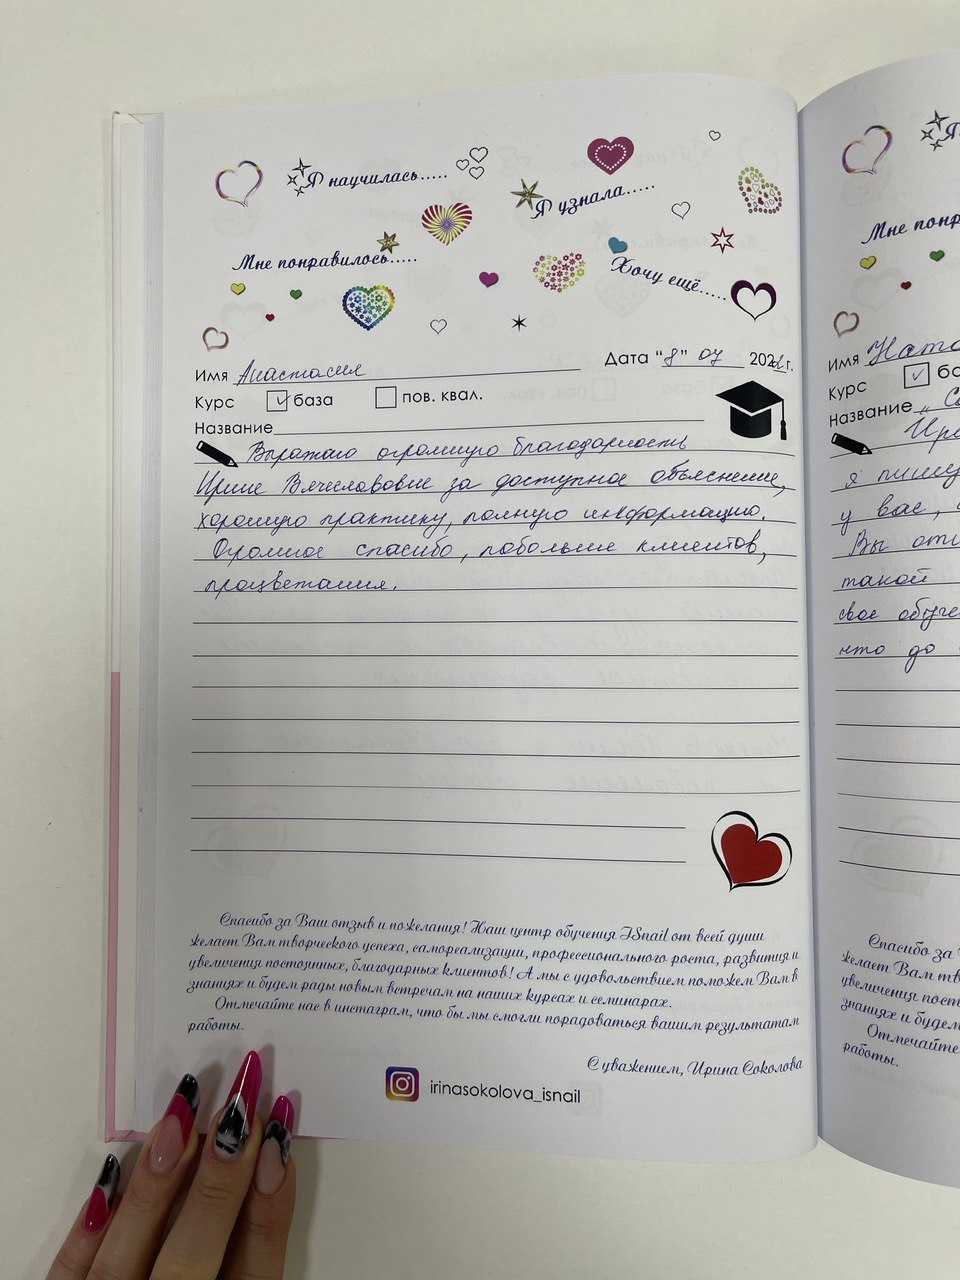 Я научилась.....
Я узнала.....
Мне понравилось.....
Хочу ещё.....
Имя Анастасия
Дата “8” 07 2022 г.
Курс ✓ база пов. квал.
Название
Выражаю огромную благодарность
Ирине Вячеславовне за доступное объяснение,
хорошую практику, полную информацию.
Огромное спасибо, побольше клиентов,
процветания.
Спасибо за Ваш отзыв и пожелания! Наш центр обучения ISnail от всей души
желает Вам творческого успеха, самореализации, профессионального роста, развития и
увеличения постоянных, благодарных клиентов! А мы с удовольствием поможем Вам в
знаниях и будем рады новым встречам на наших курсах и семинарах.
Отмечайте нас в инстаграм, что бы мы смогли порадоваться вашим результатам
работы.
С уважением, Ирина Соколова
irinasokolova_isnail
Мне понр
Имя Ната
Курс ✓ ба
Название
я пишу
у вас,
Вы
такой
свое обуче
что до
Спасибо за
желает Вам тв
увеличения пост
знаниях и будем
Отмечайте
работы.